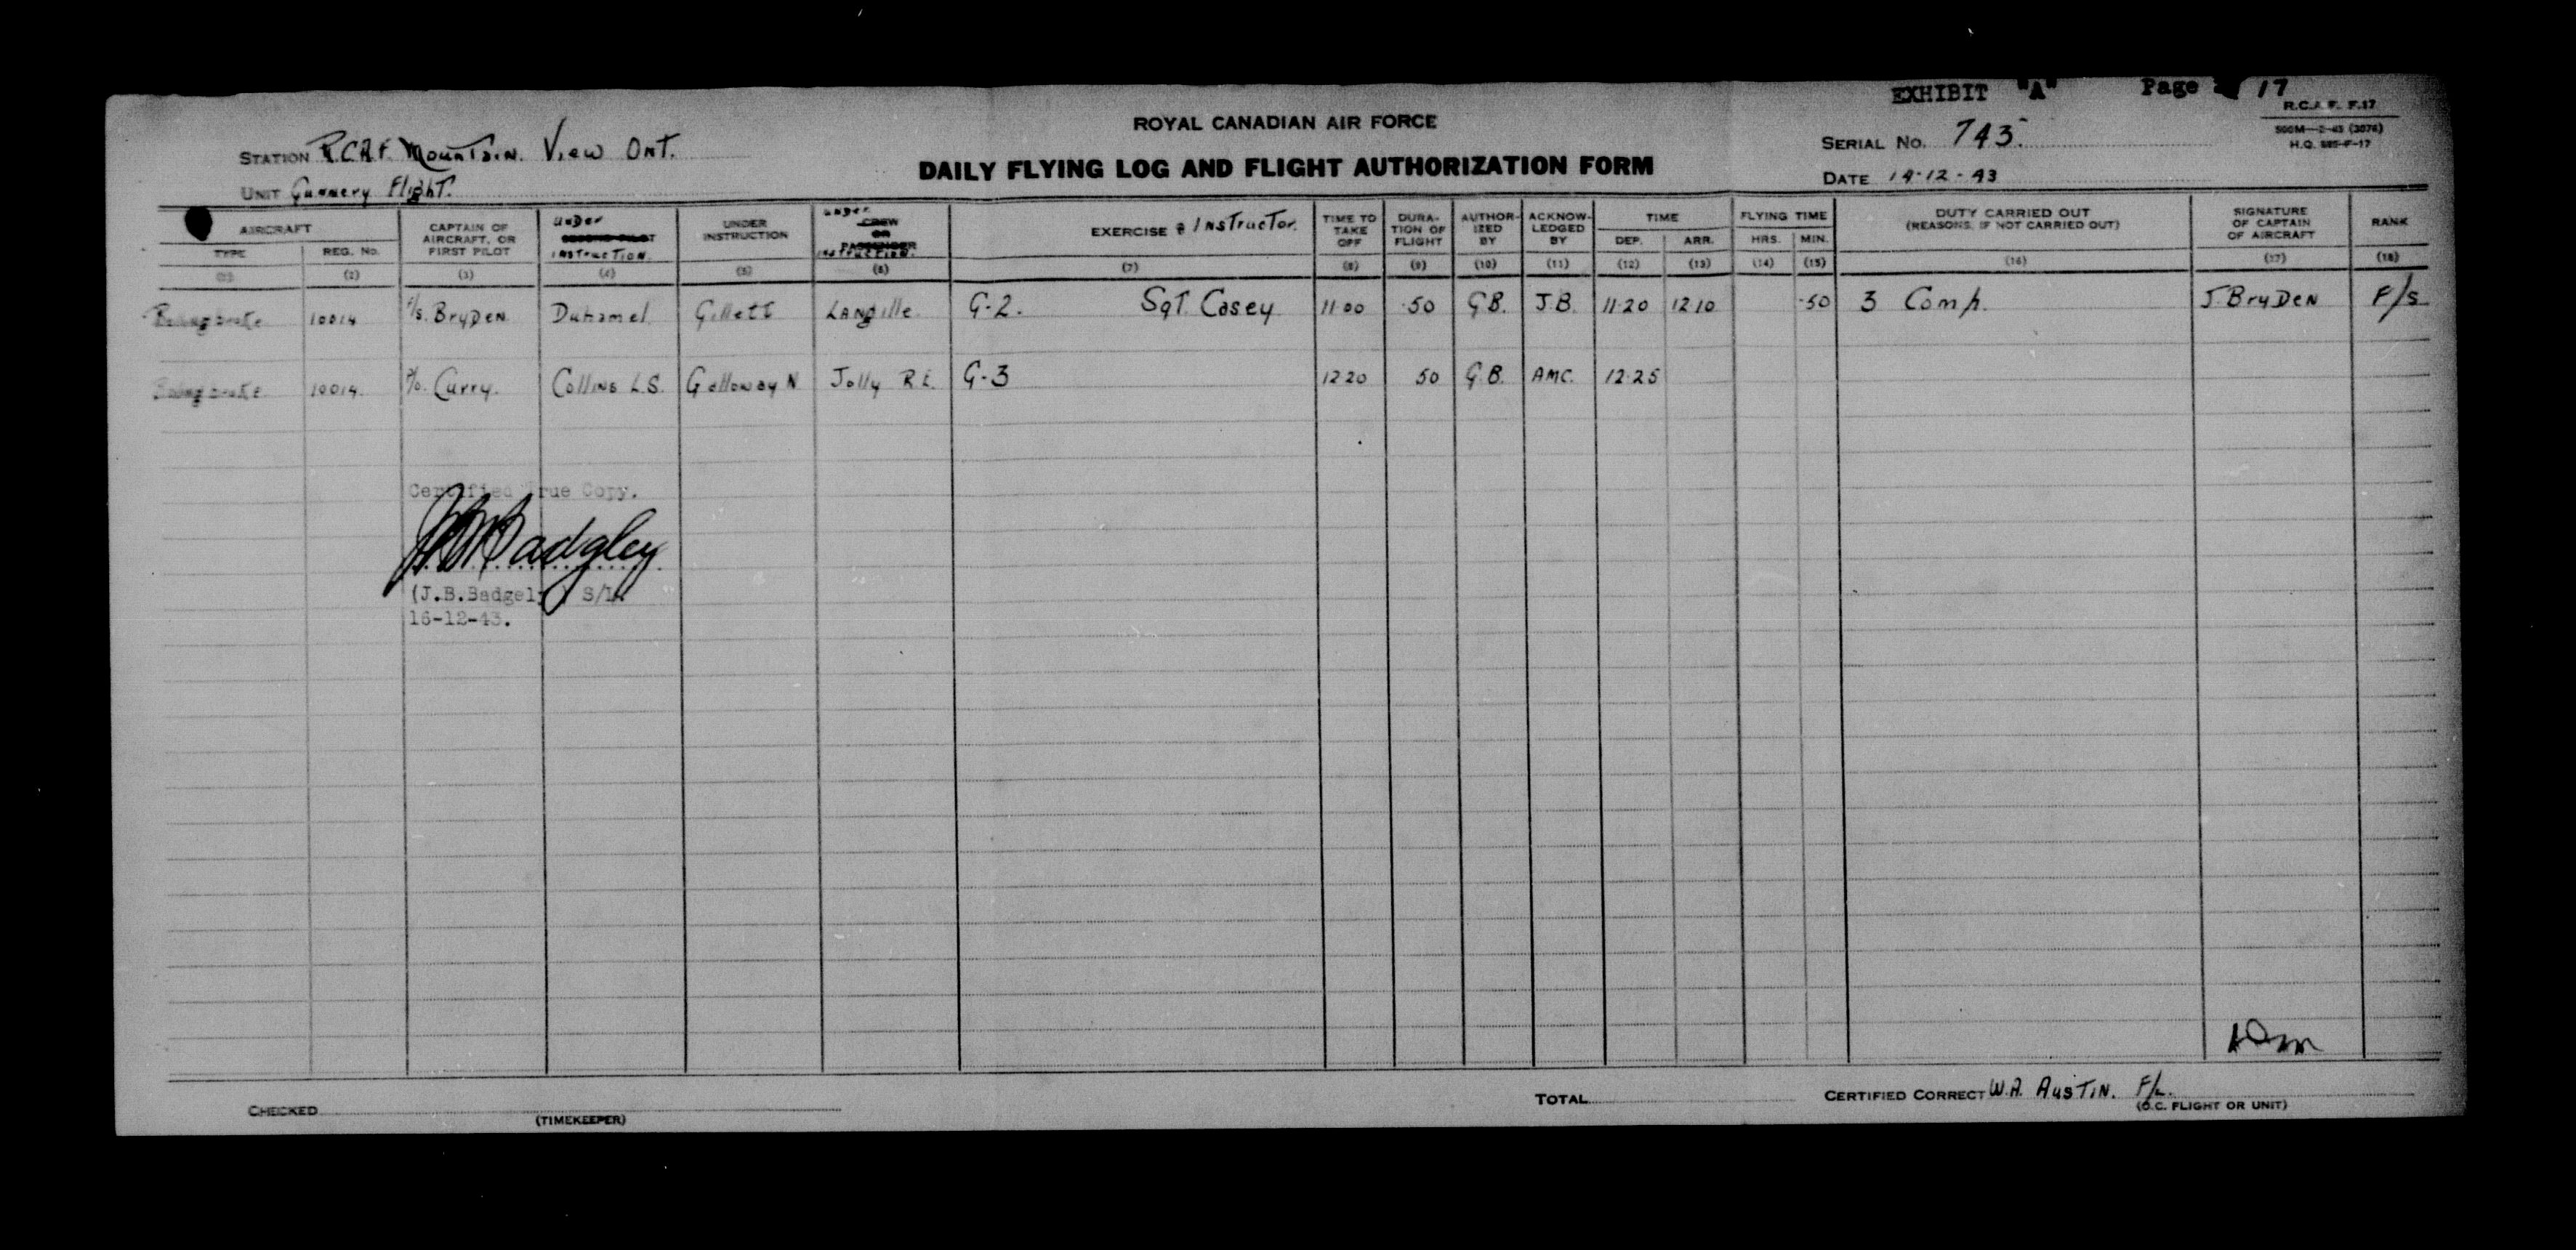 EXHIBIT "A" Page 17
R.C.A.F. F.17
500M—2-43 (3076)
H.Q. 885-F-17
ROYAL CANADIAN AIR FORCE
DAILY FLYING LOG AND FLIGHT AUTHORIZATION FORM
STATION R.C.A.F. Mountain View Ont.
UNIT Gunnery Flight.
SERIAL No. 743.
DATE 14-12-43
AIRCRAFT
TYPE REG. No.
CAPTAIN OF AIRCRAFT, OR FIRST PILOT
under SECOND PILOT instruction
UNDER INSTRUCTION
under CREW OR PASSENGER instruction.
EXERCISE & Instructor.
TIME TO TAKE OFF
DURA-TION OF FLIGHT
AUTHOR-IZED BY
ACKNOW-LEDGED BY
TIME
DEP. ARR.
FLYING TIME
HRS. MIN.
DUTY CARRIED OUT
(REASONS, IF NOT CARRIED OUT)
SIGNATURE OF CAPTAIN OF AIRCRAFT
RANK
(1) (2) (3) (4) (5) (6) (7) (8) (9) (10) (11) (12) (13) (14) (15) (16) (17) (18)
Bolingbroke 10014 F/s. Bryden Duhamel Gillett Langille G-2. Sgt. Casey 11·00 ·50 G.B. J.B. 11·20 12·10 ·50 3 Comp. J. Bryden F/s
Bolingbroke 10014 P/O. Curry. Collins L.S. Galloway N Jolly R.E. G-3 12·20 50 G.B. AMC. 12·25
Certified True Copy.
J.B. Badgley
(J.B.Badgley) S/L.
16-12-43.
CHECKED
(TIMEKEEPER)
TOTAL
CERTIFIED CORRECT W.A. Austin. F/L.
(O.C. FLIGHT OR UNIT)